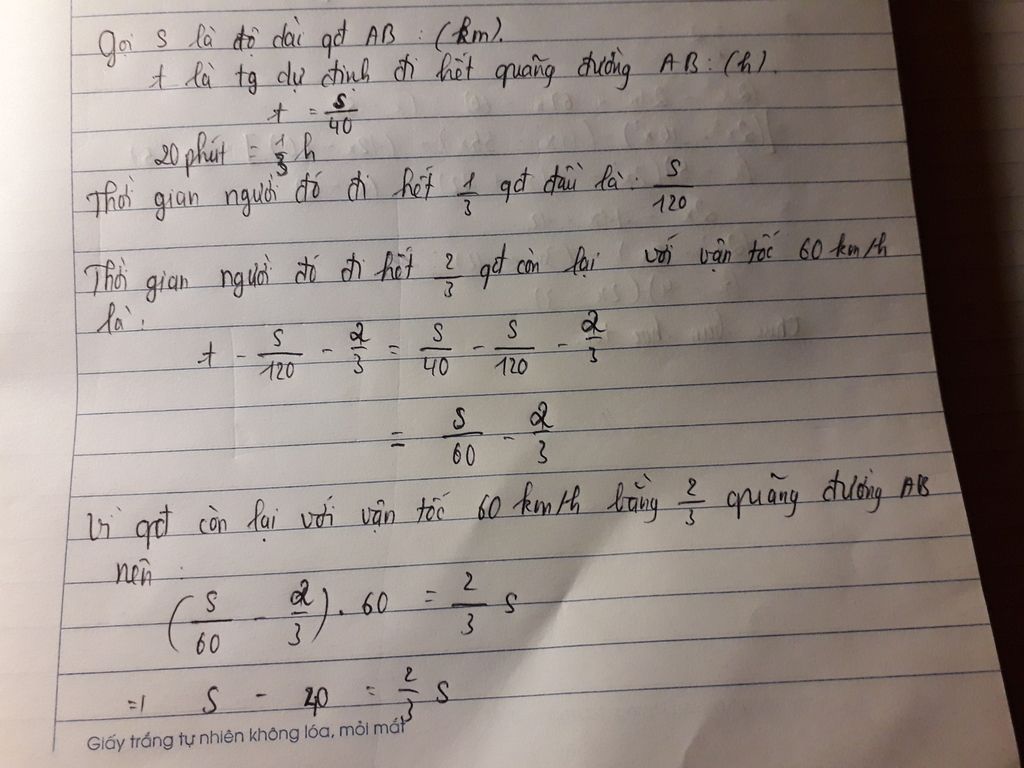 Gọi S là độ dài qđ AB : (km).
t là tg dự định đi hết quãng đường AB : (h).
t = S/40
20 phút = 1/3 h
Thời gian người đó đi hết 1/3 qđ đầu là : S/120
Thời gian người đó đi hết 2/3 qđ còn lại với vận tốc 60 km/h
là :
t - S/120 - 2/3 = S/40 - S/120 - 2/3
= S/60 - 2/3
Vì qđ còn lại với vận tốc 60 km/h bằng 2/3 quãng đường AB
nên :
(S/60 - 2/3) . 60 = 2/3 S
=) S - 40 = 2/3 S
Giấy trắng tự nhiên không lóa, mỏi mắt